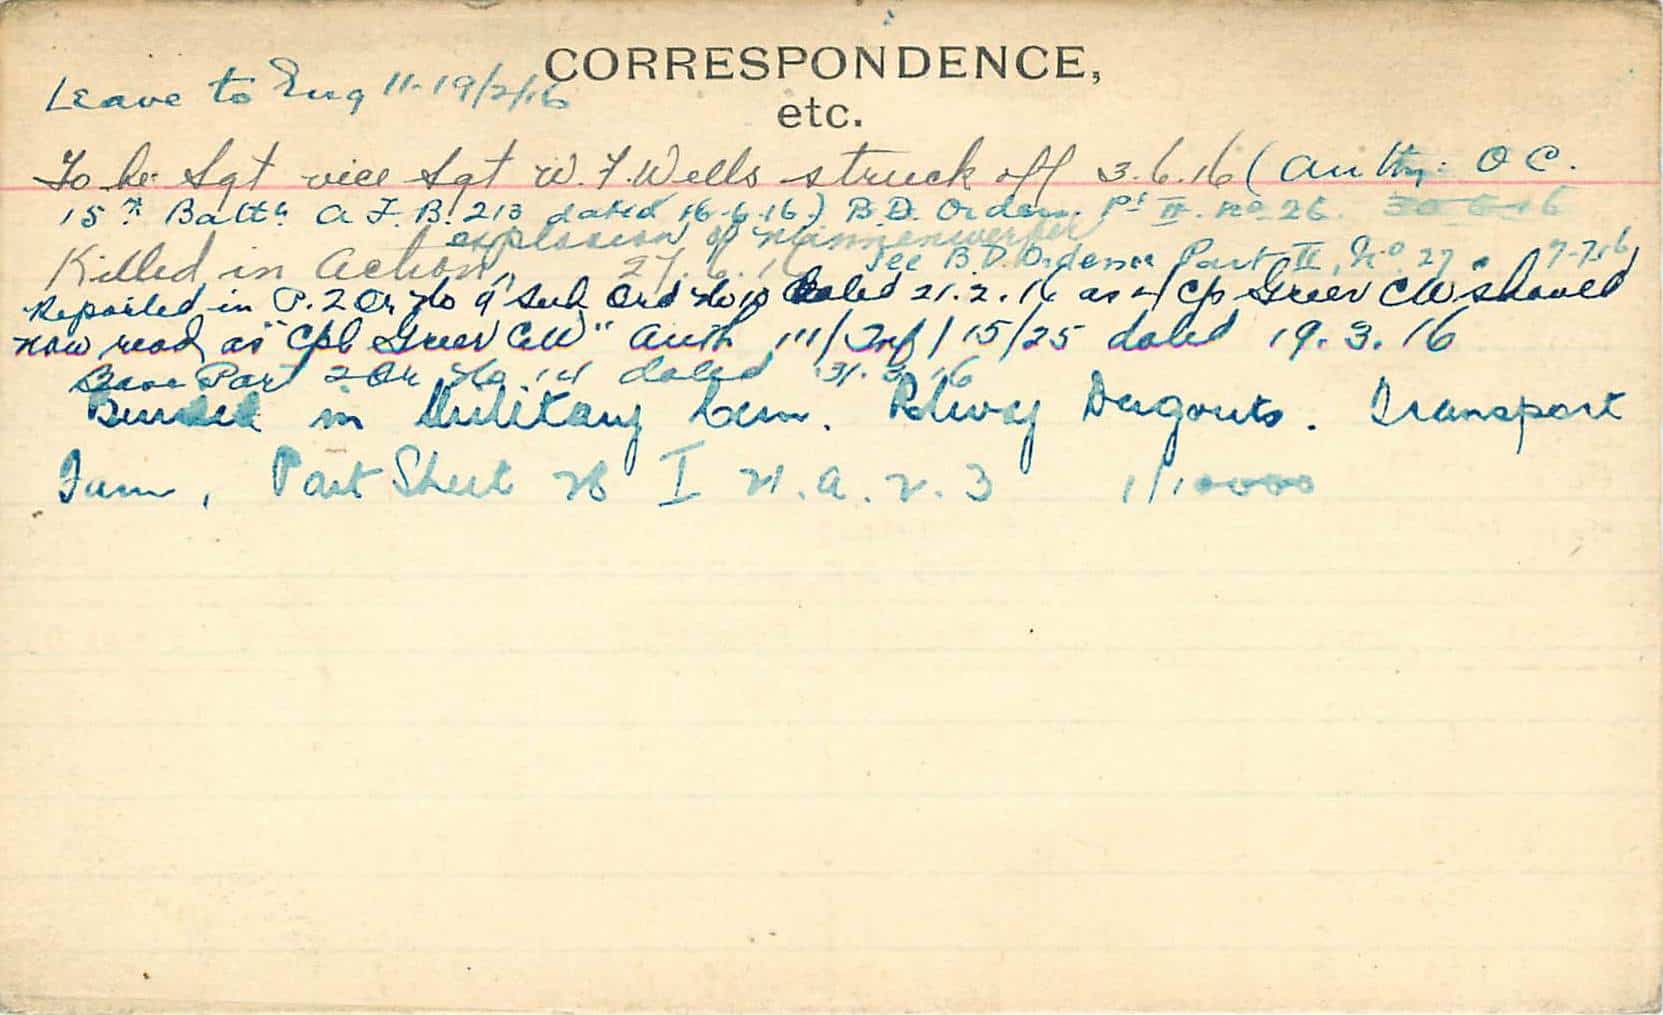 CORRESPONDENCE,
etc.
Leave to Eng 11-19/2/16
To be Sgt vice Sgt W.F. Wells struck off 3.6.16 (Authy: O C.
15th Battn A.F.B. 213 dated 16-6-16.) B.D. Orders. Pt II. No 26. 30-6-16
explosion of Minnenwerfer
Killed in Action, 27.6.16 See B.D. Orders Part II, No 27. 7-7-16
Reported in P. 2 Or No 9 Sub Ord No 10 dated 21.2.16 as "L/Cp Greer CW" should
now read as "Cpl Greer CW" Auth 111/Inf/15/25 dated 19.3.16
Base Part 2 Or No 14 dated 31.3.16
Buried in Military Cem. Rlwy Dugouts. Transport
Farm, Part Sheet 28 I 21.a.2.3 1/10000